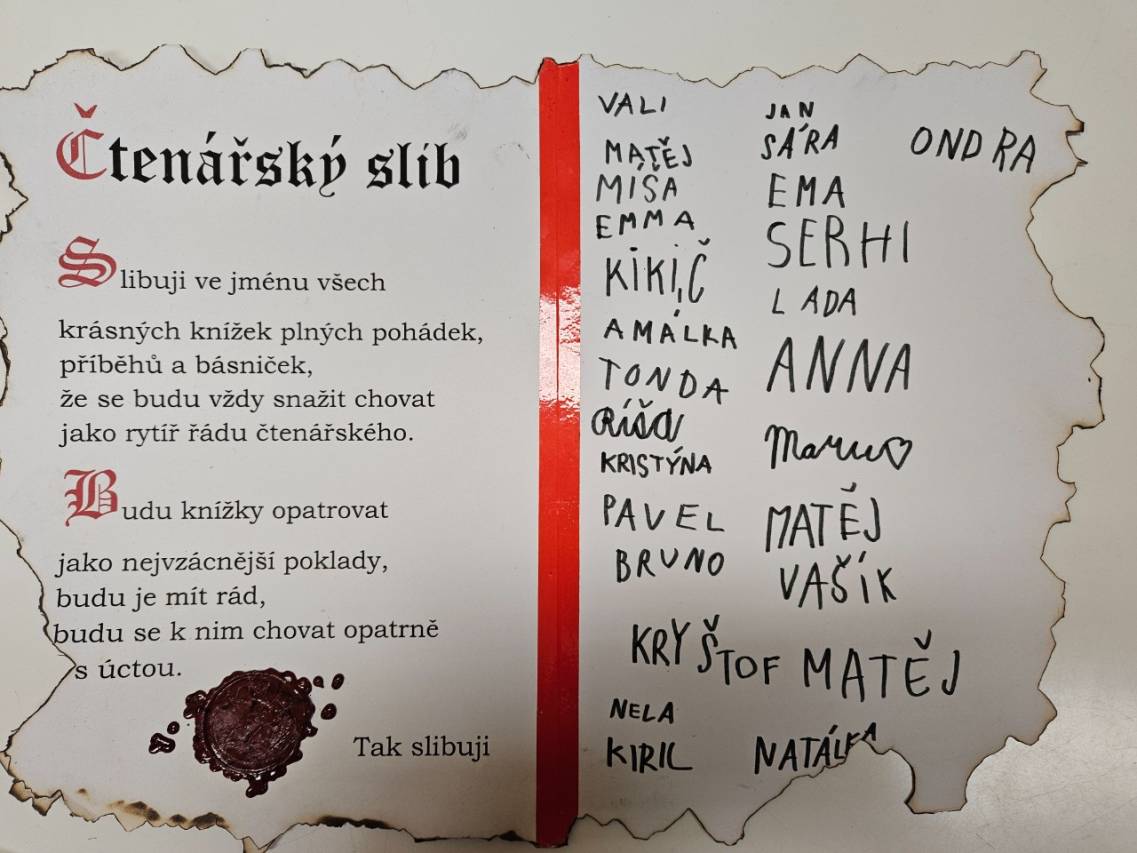 Čtenářský slib
Slibuji ve jménu všech
krásných knížek plných pohádek,
příběhů a básniček,
že se budu vždy snažit chovat
jako rytíř řádu čtenářského.
Budu knížky opatrovat
jako nejvzácnější poklady,
budu je mít rád,
budu se k nim chovat opatrně
s úctou.
Tak slibuji
VALI
MATĚJ
MÍŠA
EMMA
KIKI, Č
AMÁLKA
TONDA
Ríša
KRISTÝNA
PAVEL
BRUNO
KRYŠTOF
NELA
KIRIL
JAN
SÁRA
EMA
SERHI
LADA
ANNA
MATĚJ
VAŠÍK
MATĚJ
NATÁLKA
ONDRA